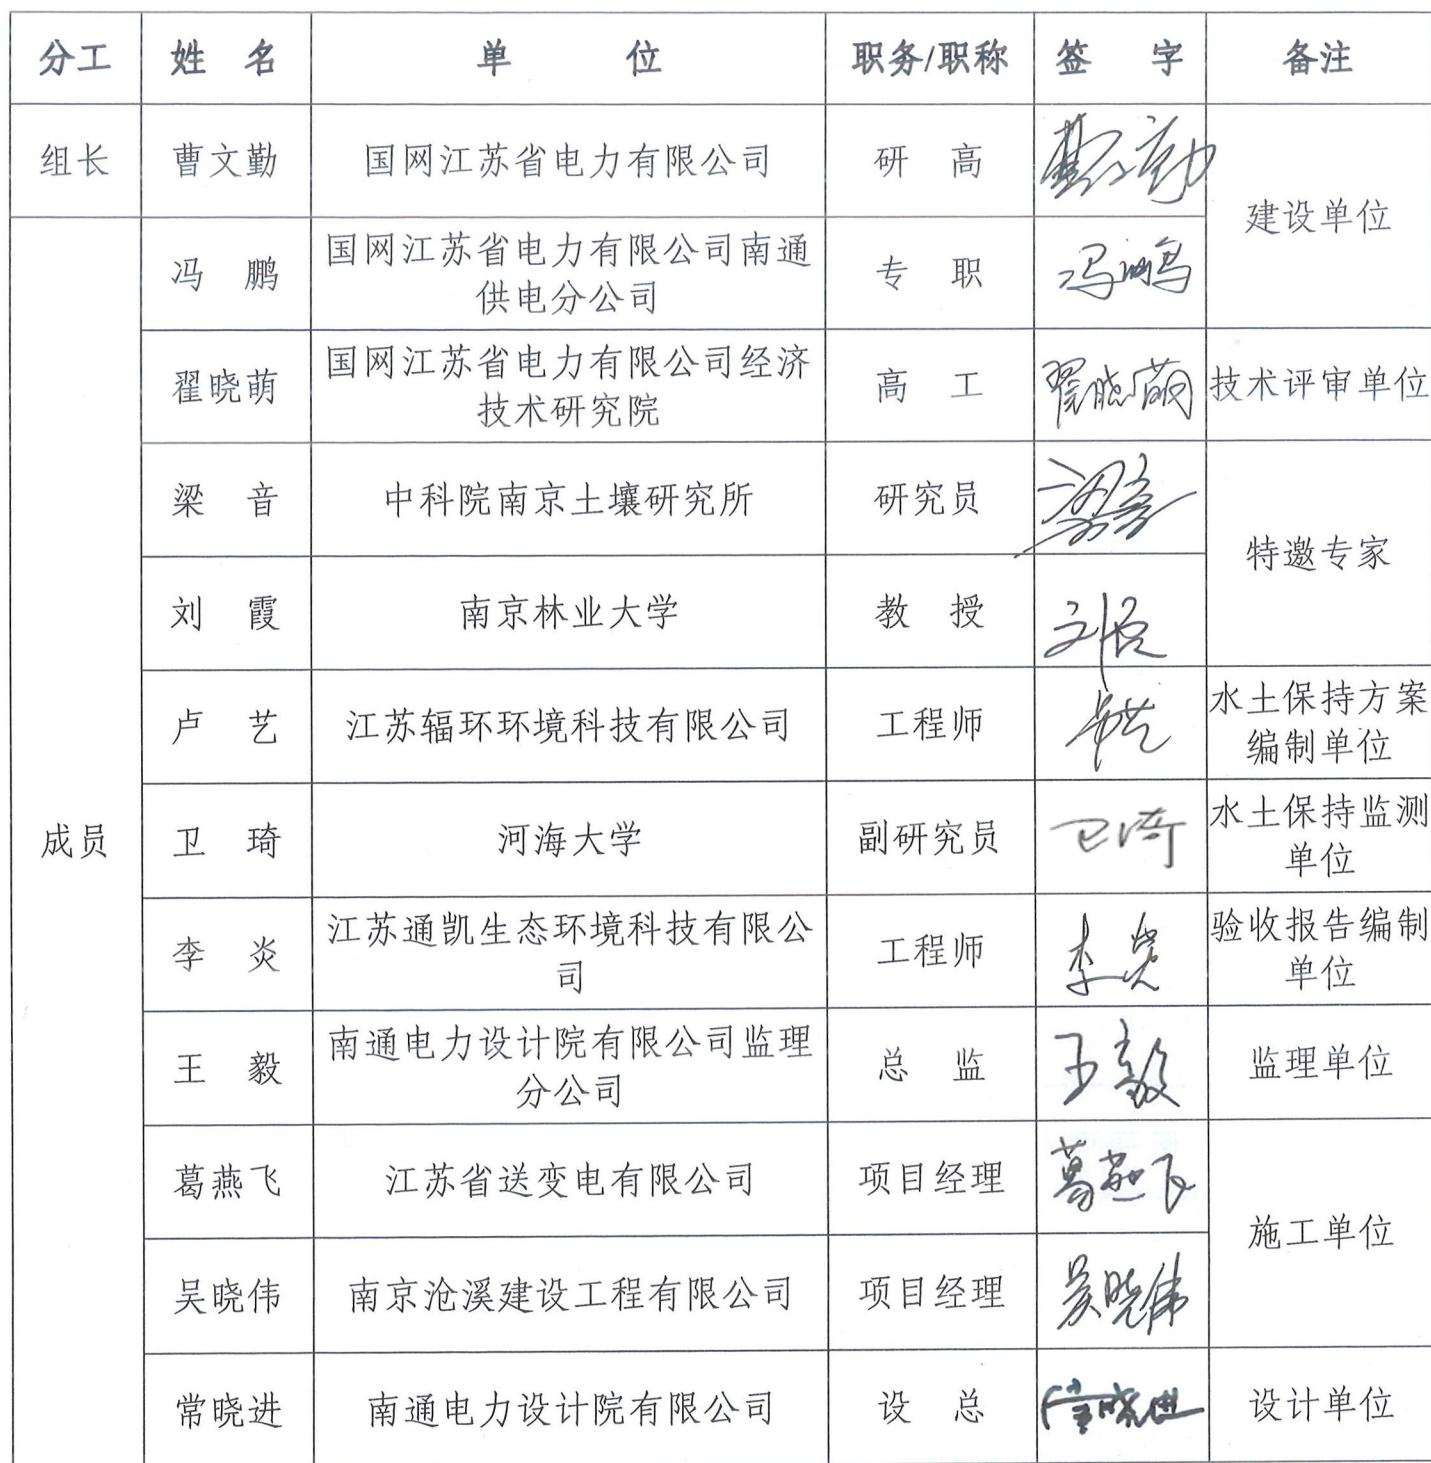 分工 姓 名 单 位 职务/职称 签 字 备注
组长 曹文勤 国网江苏省电力有限公司 研 高 曹文勤
建设单位
冯 鹏 国网江苏省电力有限公司南通
供电分公司 专 职 冯鹏
翟晓萌 国网江苏省电力有限公司经济
技术研究院 高 工 翟晓萌 技术评审单位
梁 音 中科院南京土壤研究所 研究员 梁音
特邀专家
刘 霞 南京林业大学 教 授 刘霞
卢 艺 江苏辐环环境科技有限公司 工程师 卢艺 水土保持方案
编制单位
成员 卫 琦 河海大学 副研究员 卫琦 水土保持监测
单位
李 炎 江苏通凯生态环境科技有限公
司 工程师 李炎 验收报告编制
单位
王 毅 南通电力设计院有限公司监理
分公司 总 监 王毅 监理单位
葛燕飞 江苏省送变电有限公司 项目经理 葛燕飞
施工单位
吴晓伟 南京沧溪建设工程有限公司 项目经理 吴晓伟
常晓进 南通电力设计院有限公司 设 总 常晓进 设计单位